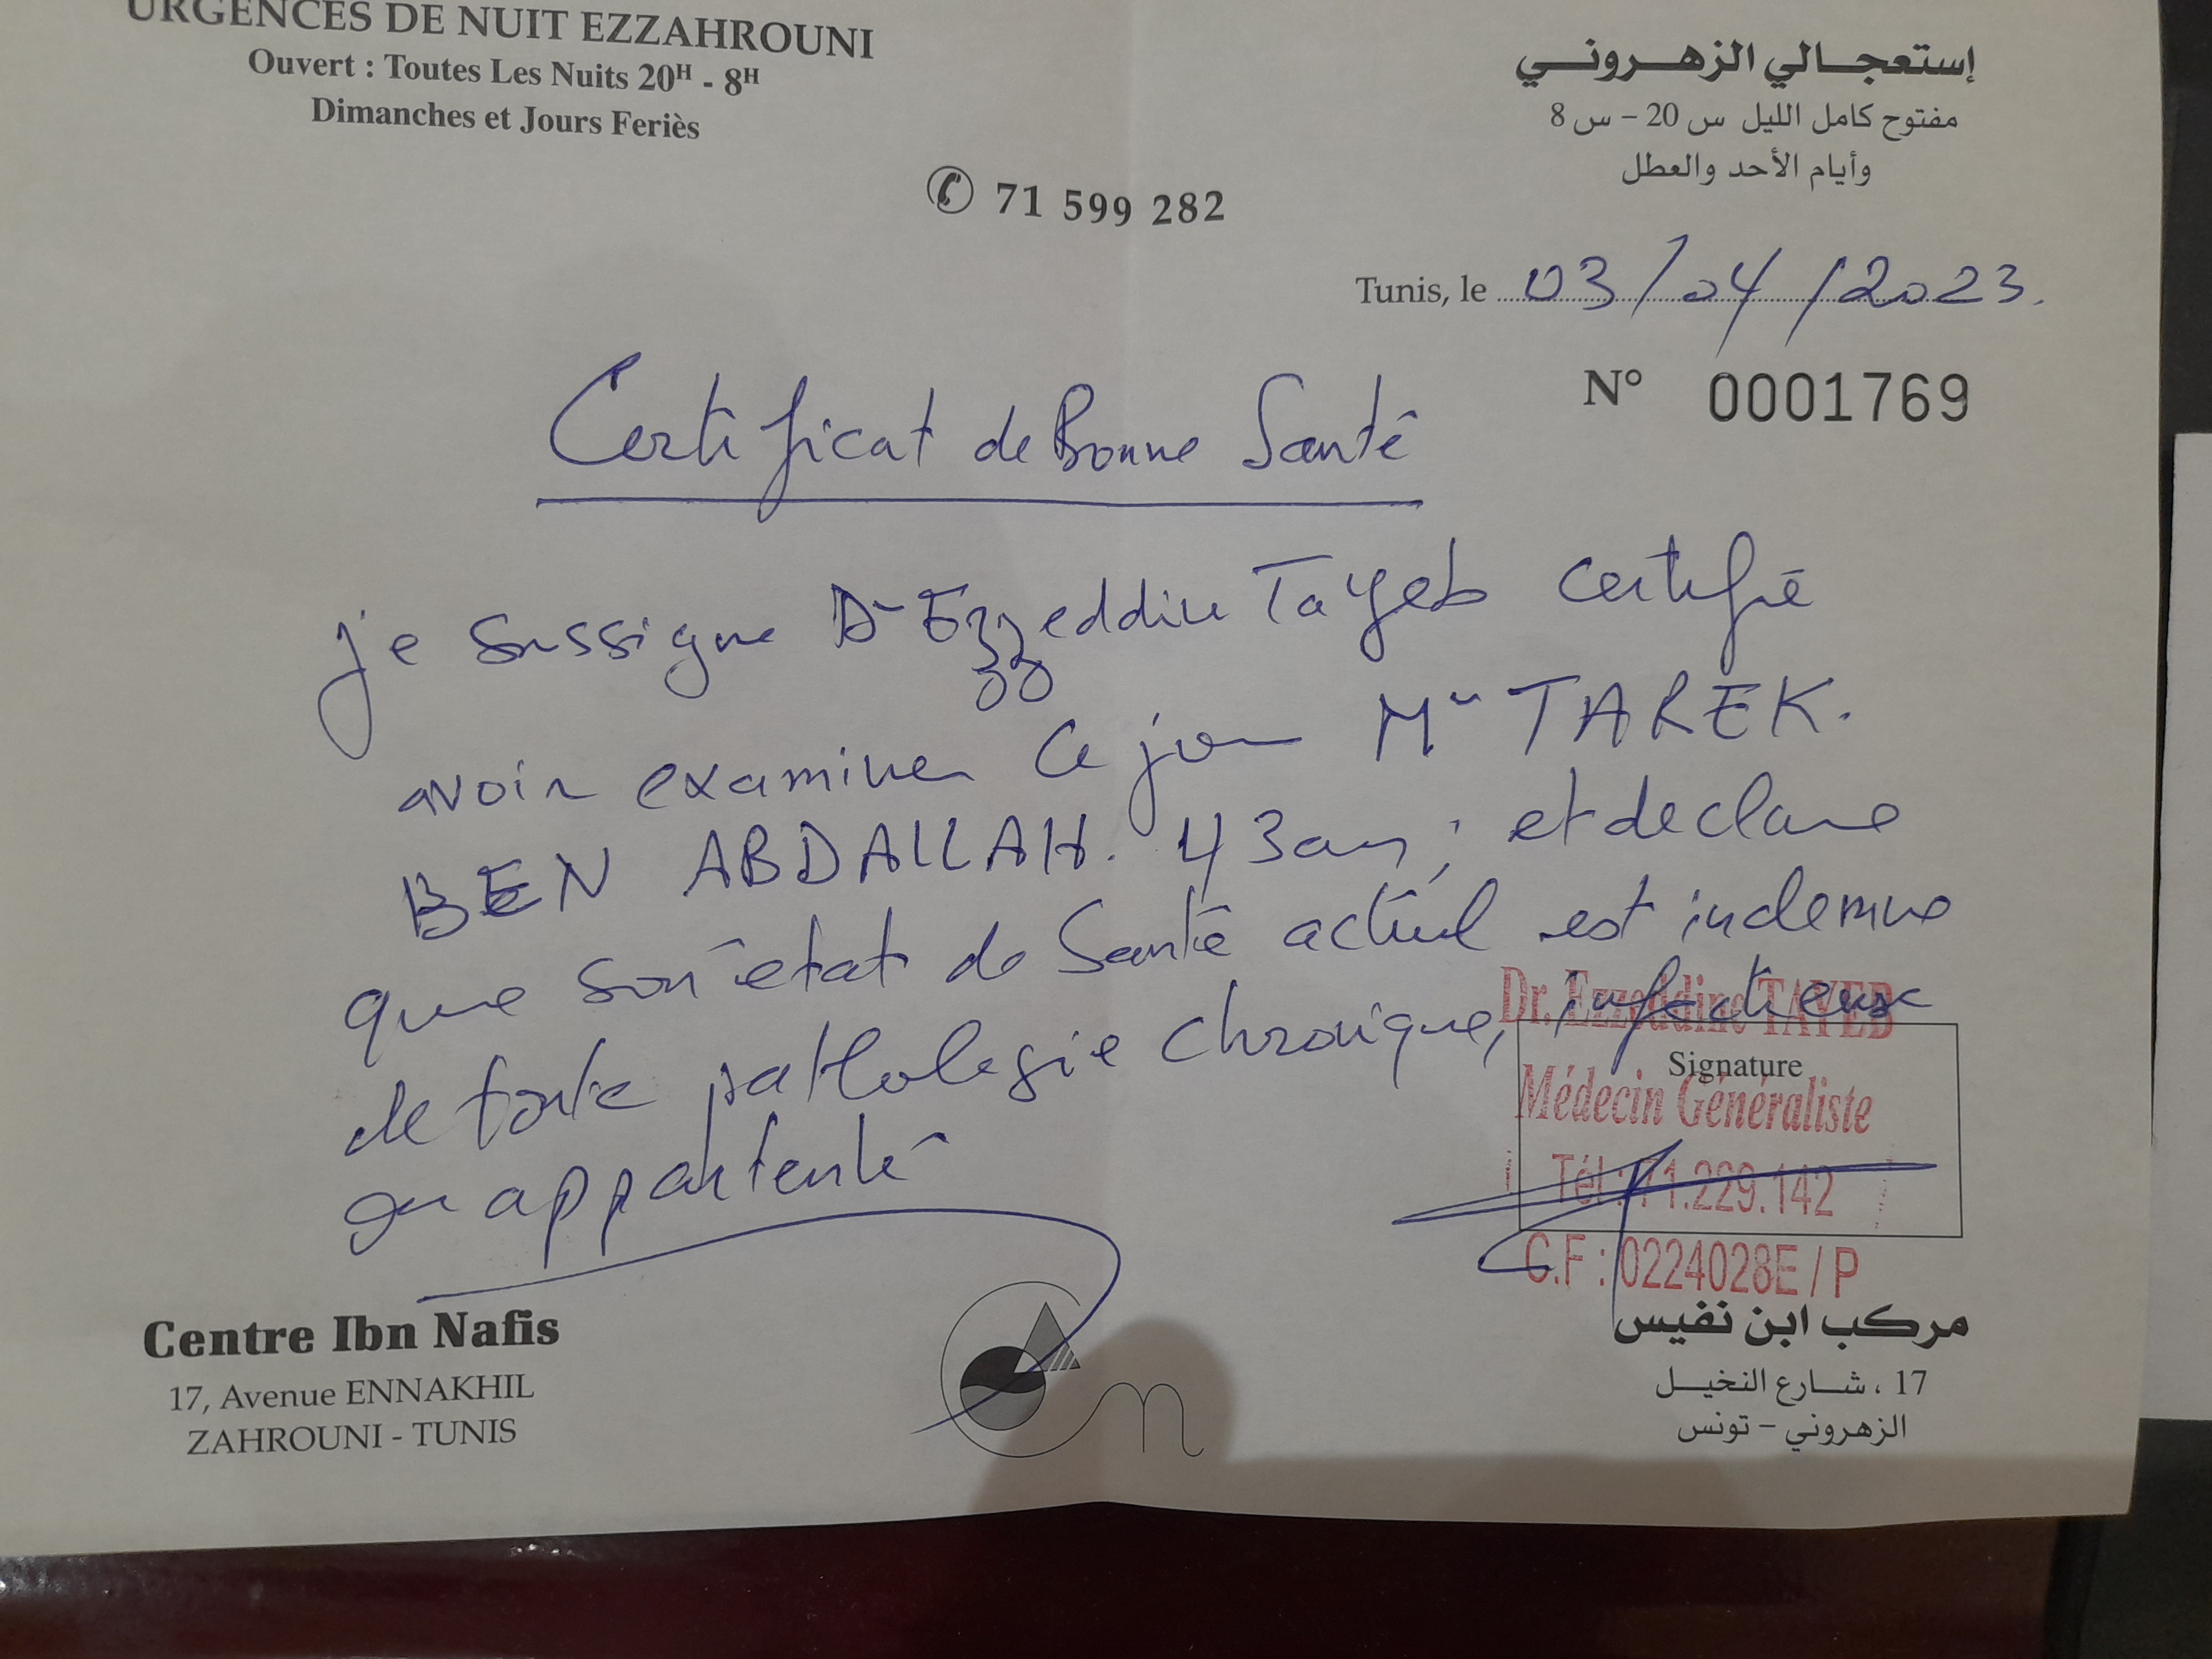 URGENCES DE NUIT EZZAHROUNI
Ouvert : Toutes Les Nuits 20H - 8H
Dimanches et Jours Feriès
إستعجالي الزهروني
مفتوح كامل الليل س 20 - س 8
وأيام الأحد والعطل
✆ 71 599 282
Tunis, le 03/04/2023.
N° 0001769
Certificat de Bonne Santé
je sussigne Dr Ezzeddine Tayeb certifie
avoir examiner ce jour Mr TAREK.
BEN ABDALLAH. 43 ans, et declare
que son état de Santé actuel est indemne
de toute pathologie chronique, infectieuse
ou appartenté
Dr. Ezzeddine TAYEB
Signature
Médecin Généraliste
Tél : 71.229.142
C.F : 0224028E / P
Centre Ibn Nafis
17, Avenue ENNAKHIL
ZAHROUNI - TUNIS
مركب ابن نفيس
17 ، شارع النخيل
الزهروني - تونس